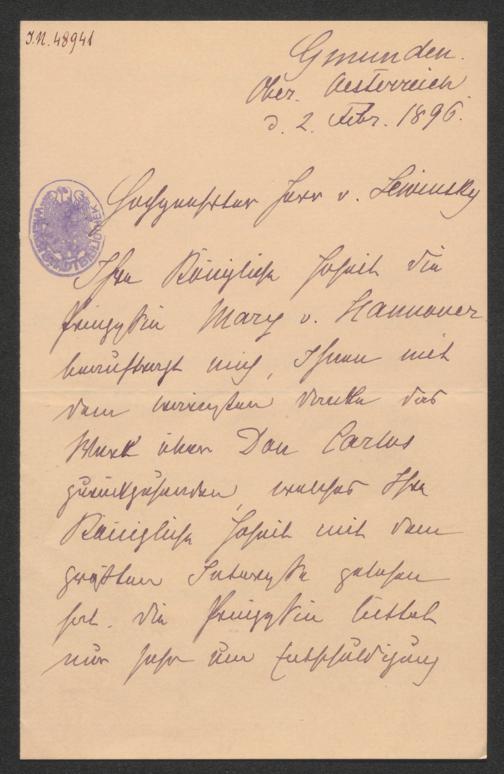 I.N. 48941
Gmunden.
Ober. Oesterreich
d. 2. Febr. 1896.
Hochgeehrter Herr v. Lewinsky
Ihre Königliche Hoheit die
Prinzessin Mary v. Hannover
beauftragt mich, Ihnen mit
dem wärmsten Danke das
Werk über Don Carlos
zurückzusenden, welches Ihre
Königliche Hoheit mit dem
größten Interesse gelesen
hat. Die Prinzessin bittet
nur sehr um Entschuldigung